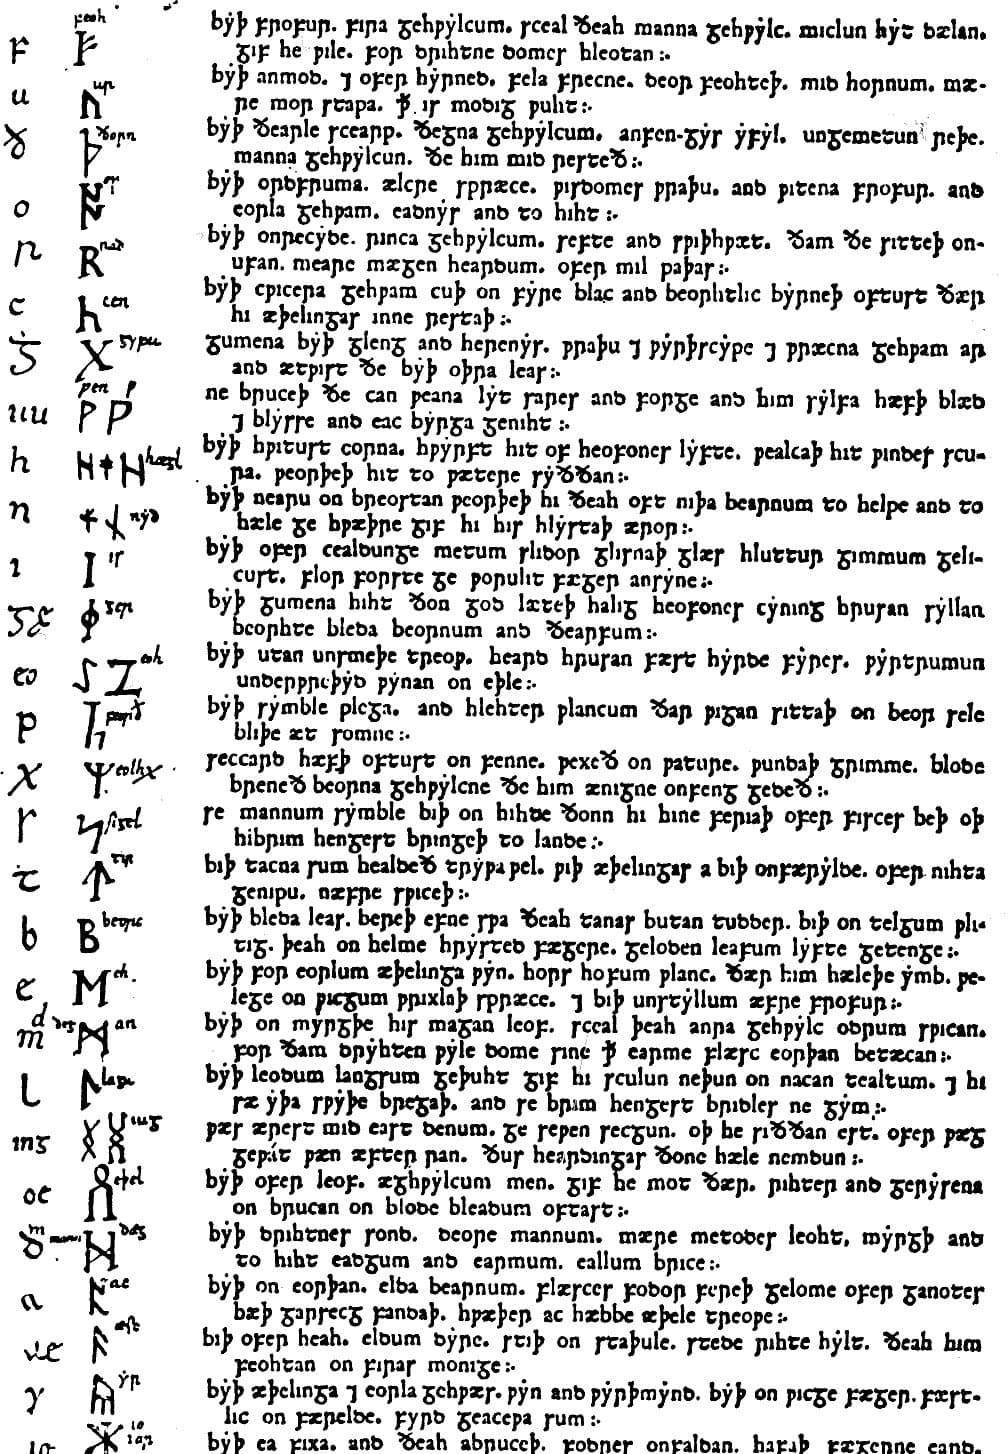 feoh
f ᚠ bẏþ frofur. fira gehƿẏlcum. sceal ðeah manna gehƿẏlc. miclun hẏt dælan.
gif he ƿile. for drihtne domes hleotan :.
u ᚢ ur bẏþ anmod. ⁊ ofer hẏrned. fela frecne. deor feohteþ. mid hornum. mæ-
re mor stapa. ꝥ is modig ƿuht :.
ð ᚦ ðorn bẏþ ðearle scearp. ðegna gehƿẏlcum. anfen-gẏs ẏfẏl. ungemetun reþe.
manna gehƿẏlcun. ðe him mid resteð :.
o ᚩ os bẏþ ordfruma. ælcre spræce. ƿisdomes ƿraþu. and ƿitena frofur. and
eorla gehƿam. eadnẏs and to hiht :.
r ᚱ rad bẏþ onrecẏde. rinca gehƿẏlcum. sefte and sƿiþhƿæt. ðam ðe sitteþ on-
ufan. meare mægen heardum. ofer mil paþas :.
c ᚳ cen bẏþ cƿicera gehƿam cuþ on fẏre blac and beorhtlic bẏrneþ oftust ðær
hi æþelingas inne restaþ :.
g ᚷ gyfu gumena bẏþ gleng and herenẏs. ƿraþu ⁊ ƿẏrþscẏpe ⁊ ƿræcna gehƿam ar
and ætƿist ðe bẏþ oþra leas :.
uu ᚹ ƿen ƿ ne bruceþ ðe can ƿeana lẏt sares and sorge and him sẏlfa hæfþ blæd
⁊ blẏsse and eac bẏrga geniht :.
h ᚻ ᚼ ᚺ hægl bẏþ hƿitust corna. hƿẏrft hit of heofones lẏfte. ƿealcaþ hit ƿindes scu-
ra. ƿeorþeþ hit to ƿætere sẏððan :.
n ᚾ nẏd bẏþ nearu on breostan ƿeorþeþ hi ðeah oft niþa bearnum to helpe and to
hæle ge hƿæþre gif hi his hlẏstaþ æror :.
i ᛁ is bẏþ ofer cealdunge metum slidor glisnaþ glæs hluttur gimmum geli-
cust. flor forste ge ƿoruht fæger ansẏne :.
gæ ᛄ ger bẏþ gumena hiht ðon god læteþ halig heofones cẏning hrusan sẏllan
beorhte bleda beornum and ðearfum :.
eo ᛇ eoh bẏþ utan unsmeþe treoƿ. heard hrusan fæst hẏrde fẏres. ƿẏrtrumun
underƿreþẏd ƿẏnan on eþle :.
p ᛈ peorð bẏþ sẏmble plega. and hlehter ƿlancum ðar ƿigan sittaþ on beor sele
bliþe æt somne :.
x ᛉ eolhx seccard hæfþ oftust on fenne. ƿexeð on ƿature. ƿundaþ grimme. blode
breneð beorna gehƿẏlcne ðe him ænigne onfeng gedeð :.
s ᛋ sigel se mannum sẏmble biþ on hihte ðonn hi hine feriaþ ofer fisces beþ oþ
hibrim hengest bringeþ to lande :.
t ᛏ tir biþ tacna sum healdeð trẏƿa ƿel. ƿiþ æþelingas a biþ onfærẏlde. ofer nihta
genipu. næfre sƿiceþ :.
b ᛒ beorc bẏþ bleda leas. bereþ efne sƿa ðeah tanas butan tudder. biþ on telgum ƿli-
tig. þeah on helme hrẏsted fægere. geloden leafum lẏfte getenge :.
e ᛖ eh bẏþ for eorlum æþelinga ƿẏn. hors hofum ƿlanc. ðær him hæleþe ẏmb. ƿe-
lege on ƿicgum ƿrixlaþ spræce. ⁊ biþ unstẏllum æfre frofur :.
m d ᛗ deg an bẏþ on mẏrgþe his magan leof. sceal þeah anra gehƿẏlc odrum sƿican.
for ðam drẏhten ƿẏle dome sine ꝥ earme flæsc eorþan betæcan :.
l ᛚ lagu bẏþ leodum langsum geþuht gif hi sculun neþun on nacan tealtum. ⁊ hi
sæ ẏþa sƿẏþe bregaþ. and se brim hengest bridles ne gẏm :.
ing ᛝ ing ƿæs ærest mid east denum. ge seƿen secgun. oþ he siððan est. ofer ƿæg
geƿát ƿæn æfter ran. ðus heardingas ðone hæle nemdun :.
oe ᛟ eþel bẏþ ofer leof. æghƿẏlcum men. gif he mot ðær. rihter and gerẏsena
on brucan on blode bleadum oftast :.
ð m mann ᛞ dæg bẏþ drihtnes sond. deore mannum. mære metodes leoht, mẏrgþ and
to hiht eadgum and earmum. eallum brice :.
a ᚪ ac bẏþ on eorþan. elda bearnum. flæsces fodor fereþ gelome ofer ganotes
bæþ garsecg fandaþ. hƿæþer ac hæbbe æþele treoƿe :.
æ ᚫ æsc biþ ofer heah. eldum dẏre. stiþ on staþule. stede rihte hẏlt. ðeah him
feohtan on firas monige :.
y ᚣ ẏr bẏþ æþelinga ⁊ eorla gehƿæs. ƿẏn and ƿẏrþmẏnd. bẏþ on ƿicge fæger. fæst-
lic on færelde. fẏrd geaceƿa sum :.
io ᛡ io iar bẏþ ea fixa. and ðeah abruceþ. fodres onfaldan. hafaþ fægerne eard.